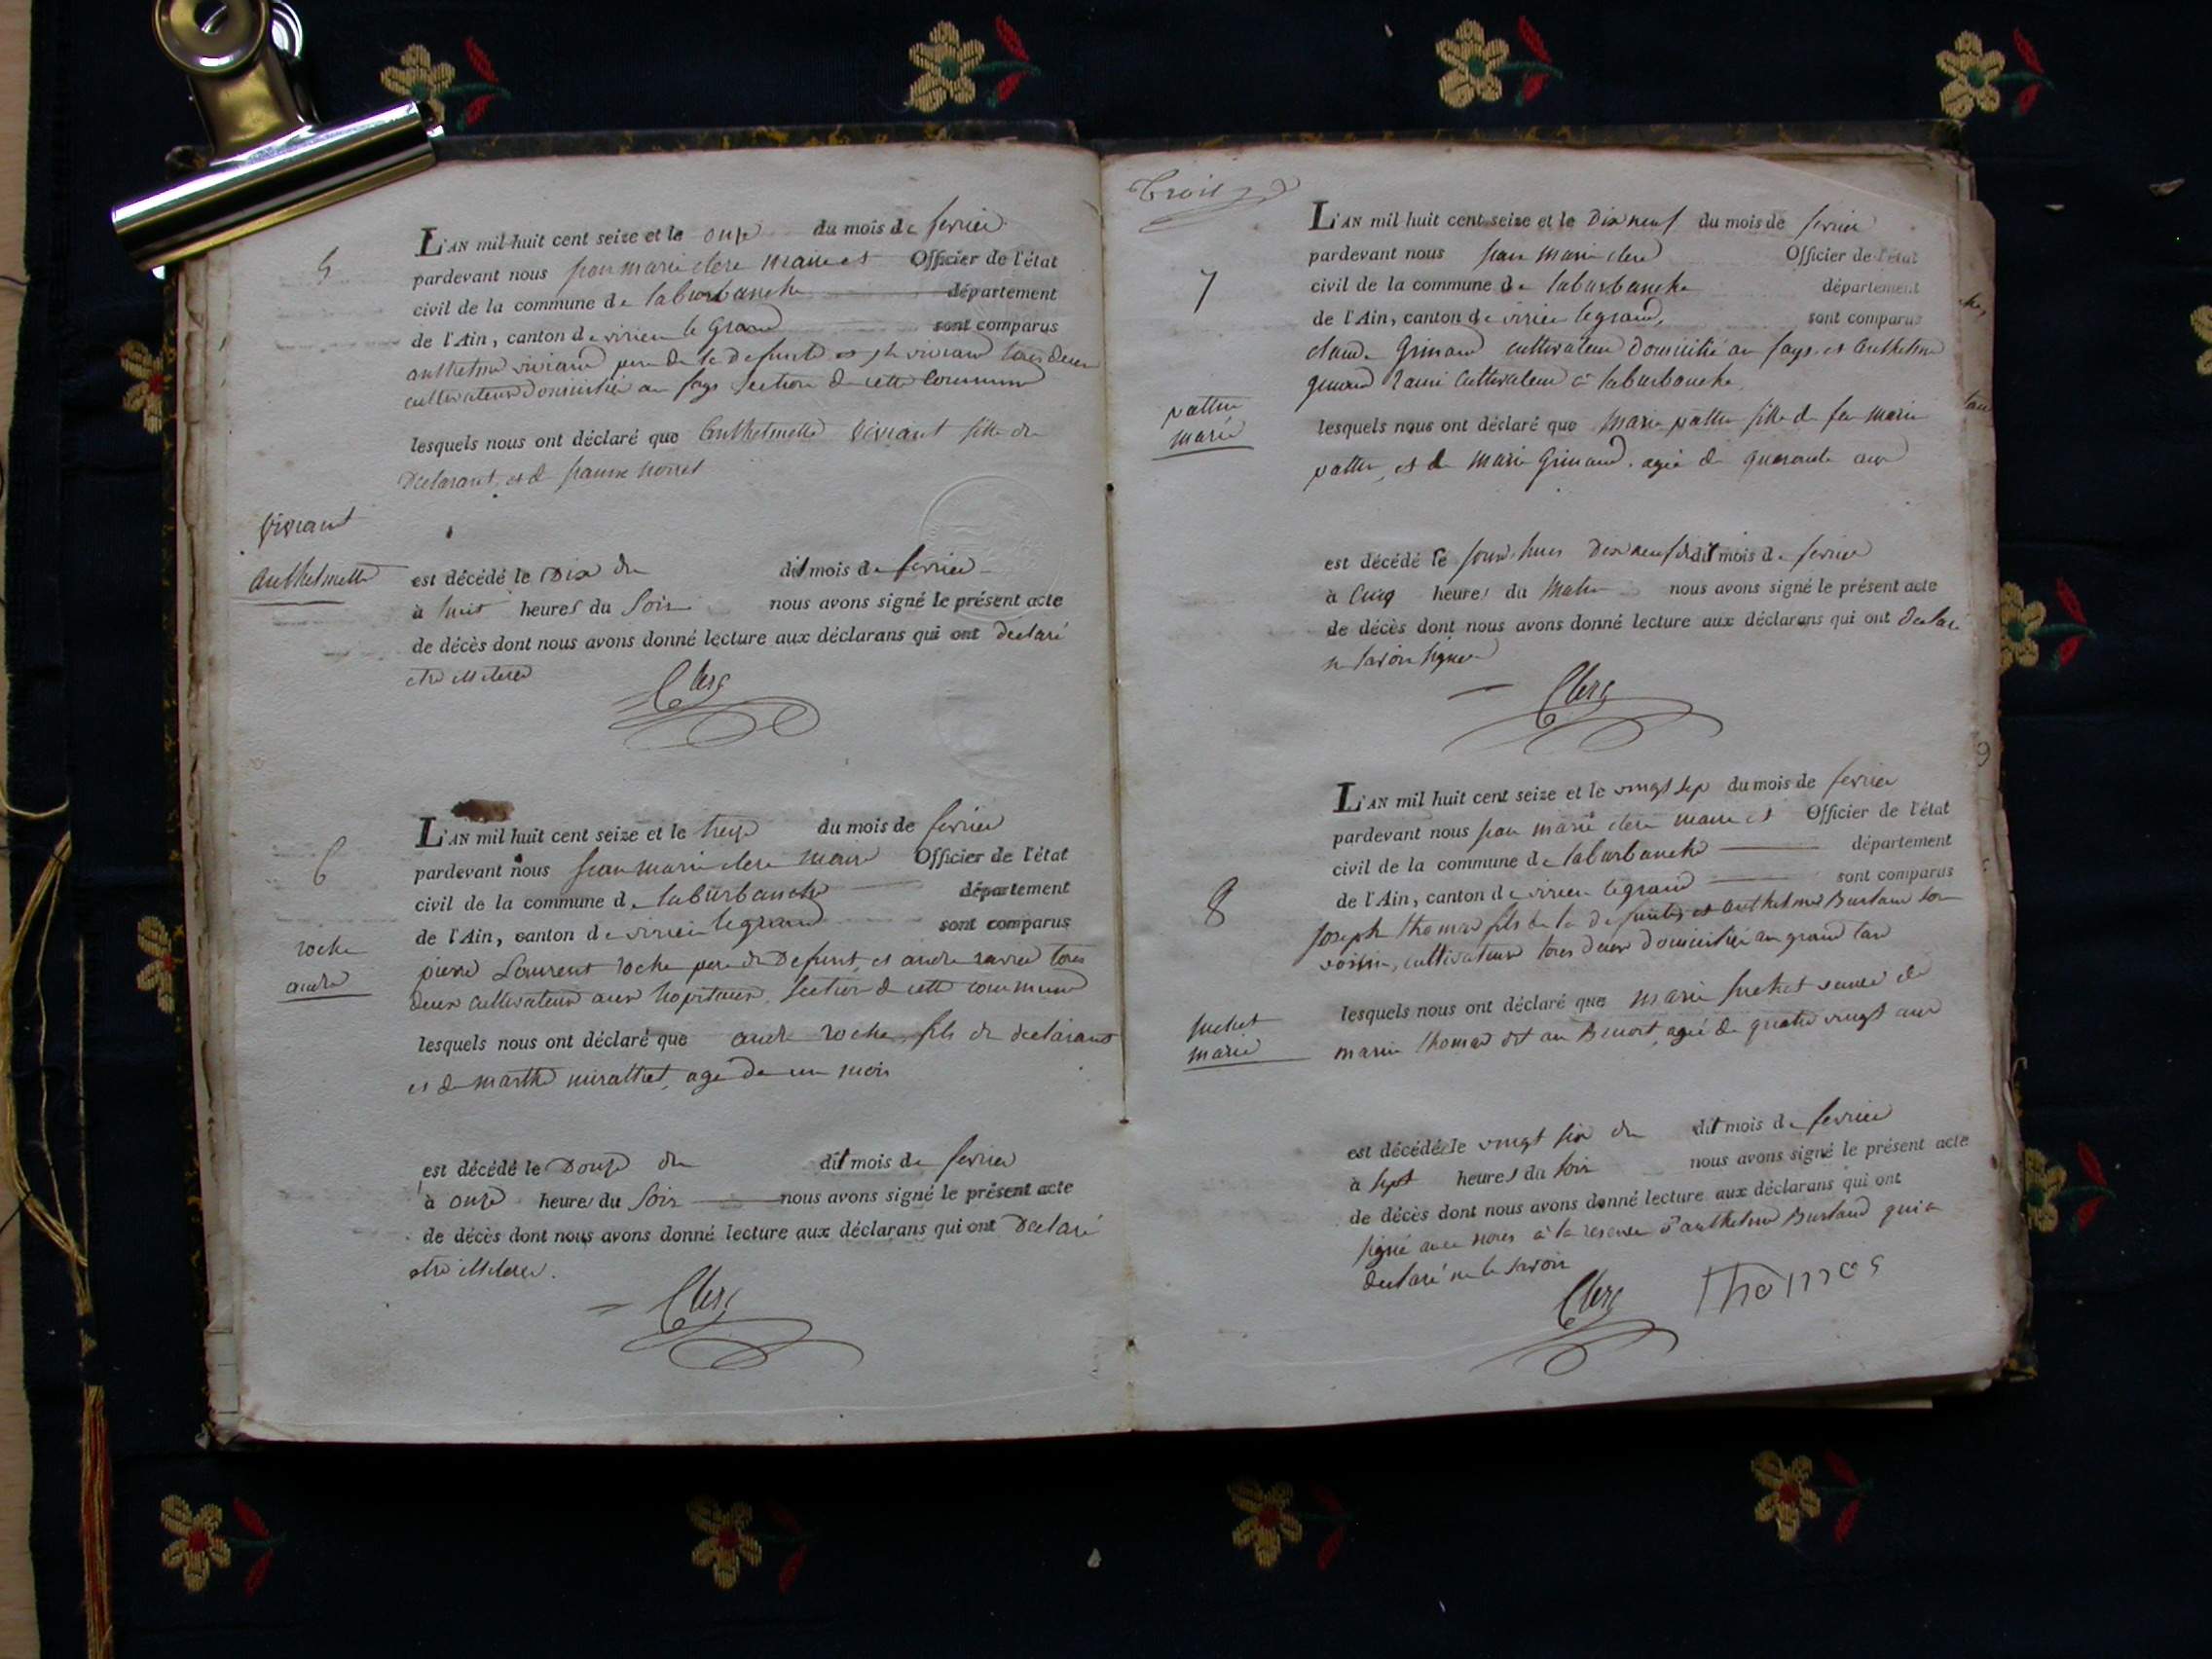 5
L'AN mil huit cent seize et le onze du mois de fevrier
pardevant nous jean marie clerc maire et Officier de l'état
civil de la commune de laburbanche département
de l'Ain, canton de virieu le Grand sont comparus
anthelme viviand pere de la Defunte et viviand tous deux
cultivateurs Domicilié au fays Section de cette Commune
lesquels nous ont déclaré que Anthelmette Viviant fille du
Declarant et de
Viviant
Anthelmette
est décédé le Dix du dit mois de fevrier
à huit heures du Soir nous avons signé le présent acte
de décès dont nous avons donné lecture aux déclarans qui ont declaré
etre illiteré
Clerc
6
L'AN mil huit cent seize et le treize du mois de fevrier
pardevant nous jean marie clerc maire Officier de l'état
civil de la commune de laburbanche département
de l'Ain, canton de virieu legrand sont comparus
roche
andré
pierre Laurent roche pere du Defunt, et andré tous
deux cultivateurs aux hopitaux, Section de cette commune
lesquels nous ont déclaré que andré roche fils du declarant
et de marthe agé de un mois
est décédé le Douze du dit mois de fevrier
à onze heures du Soir nous avons signé le présent acte
de décès dont nous avons donné lecture aux déclarans qui ont Declaré
etre illiteré.
Clerc
Trois
7
L'AN mil huit cent seize et le Dix neuf du mois de fevrier
pardevant nous jean marie clerc Officier de l'état
civil de la commune de laburbanche département
de l'Ain, canton de virieu legrand, sont comparus
claude Grinand cultivateur Domicilié au fays et Anthelme
Cultivateur à laburbanche
vattin
marie
lesquels nous ont déclaré que marie vattin fille de feu marin
vattin, et de marie Grinand, agée de quarante ans
est décédé le jourd'hui Dix neuf du dit mois de fevrier
à Cinq heures du Matin nous avons signé le présent acte
de décès dont nous avons donné lecture aux déclarans qui ont declaré
ne savoir signer
Clerc
8
L'AN mil huit cent seize et le vingt sep du mois de fevrier
pardevant nous jean marie clerc maire et Officier de l'état
civil de la commune de laburbanche département
de l'Ain, canton de virieu legrand sont comparus
joseph thomas fils de la defunte, et anthelme Burtand son
voisin, cultivateurs tous deux domicilié au grand
suchet
marie
lesquels nous ont déclaré que marie suchet veuve de
marin thomas dit au Benoit, agée de quatre vingt ans
est décédée le vingt six du dit mois de fevrier
à sept heures du soir nous avons signé le présent acte
de décès dont nous avons donné lecture aux déclarans qui ont
signé avec nous à la reserve d'anthelme Burtand qui a
declaré ne le savoir
Clerc Thomas
9